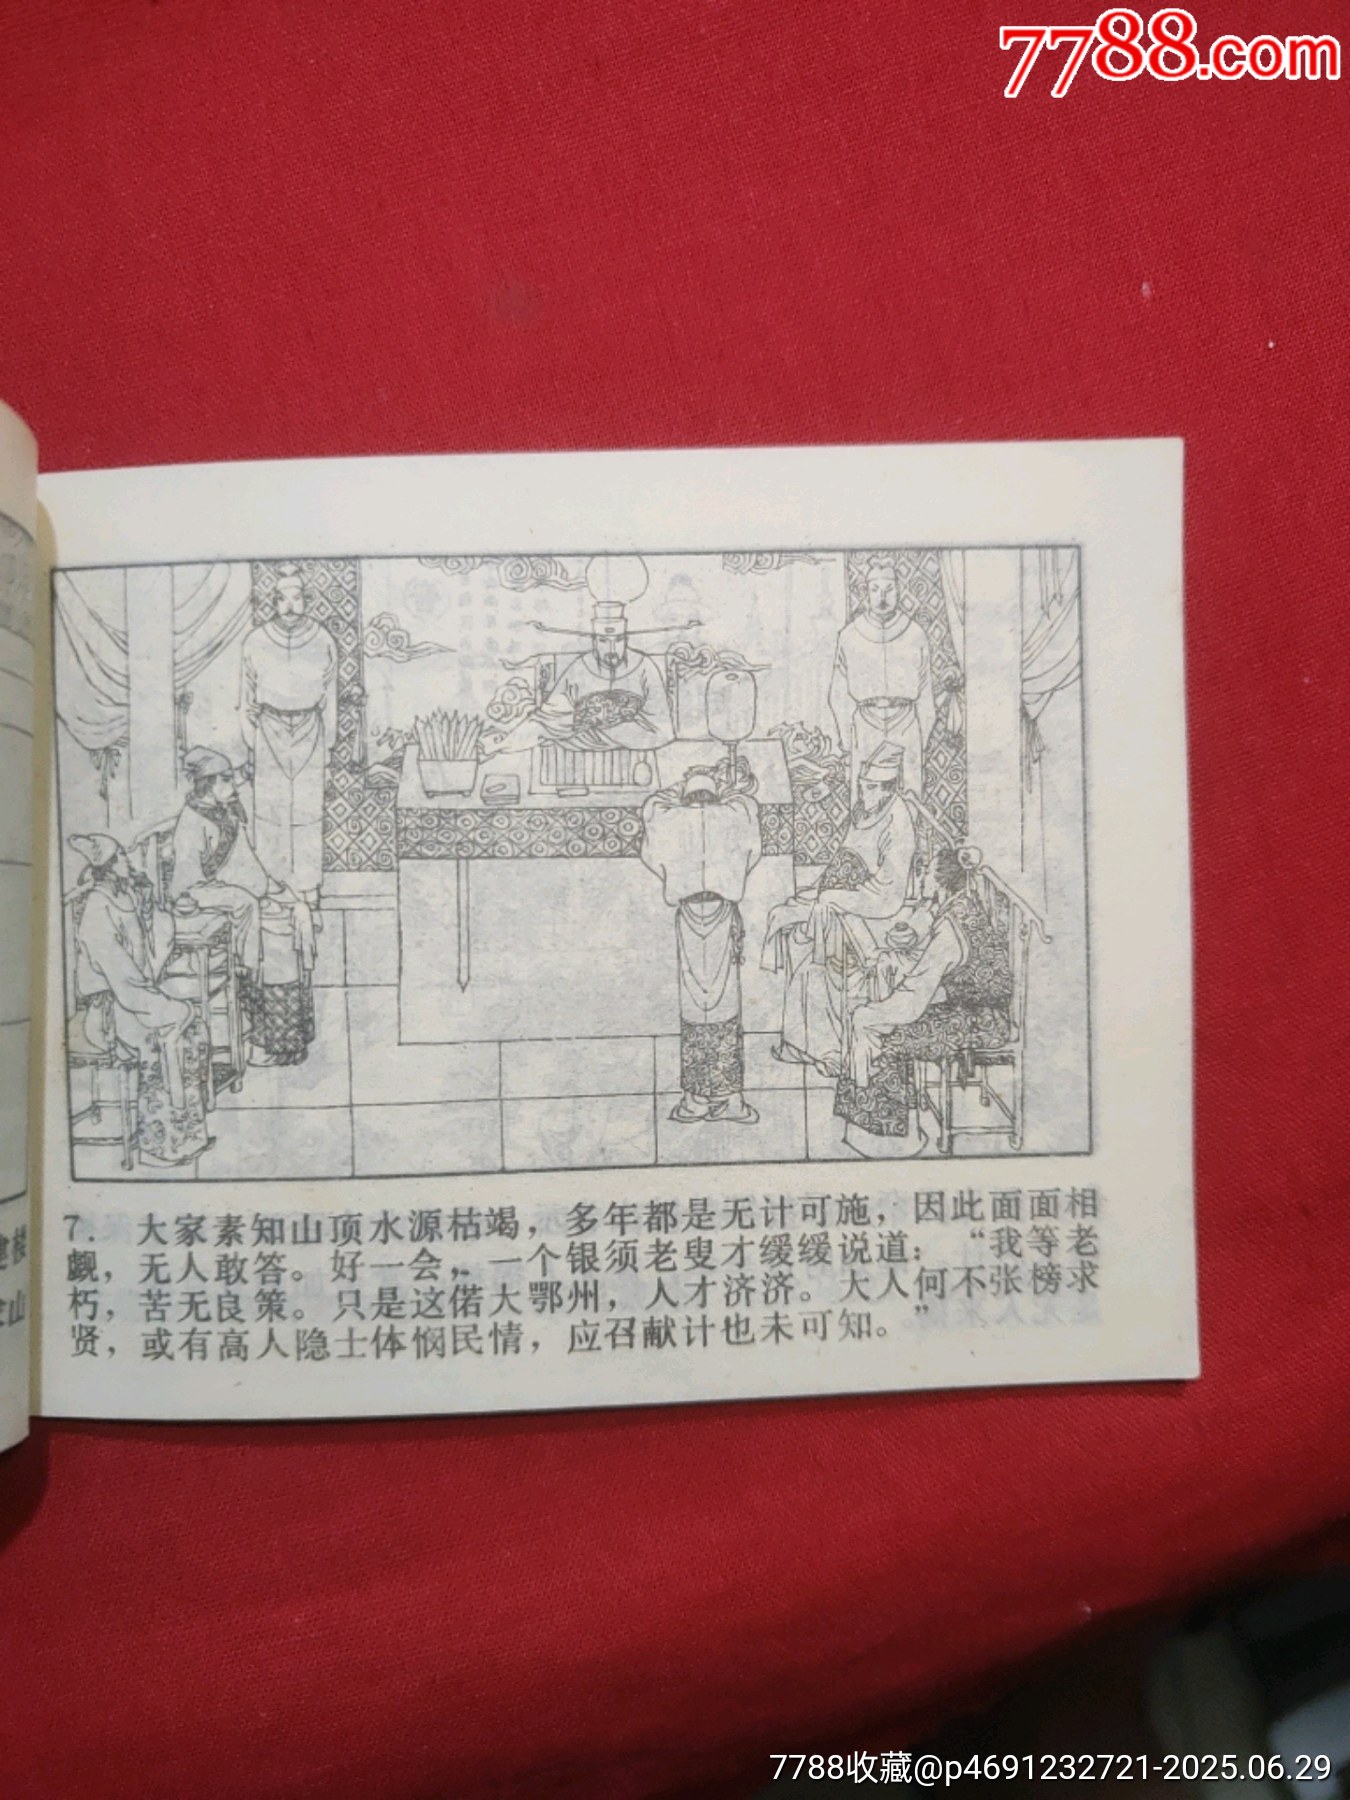 7788.com
7. 大家素知山顶水源枯竭，多年都是无计可施，因此面面相
觑，无人敢答。好一会，一个银须老叟才缓缓说道：“我等老
朽，苦无良策。只是这偌大鄂州，人才济济。大人何不张榜求
贤，或有高人隐士体悯民情，应召献计也未可知。”
建楼
山
7788收藏@p4691232721-2025.06.29